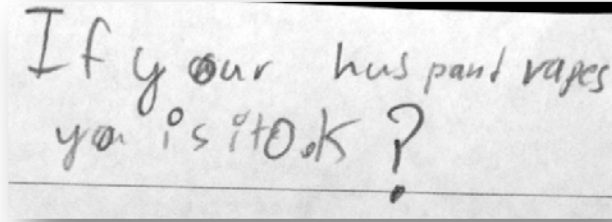 If your huspant rapes
you is it O.K ?